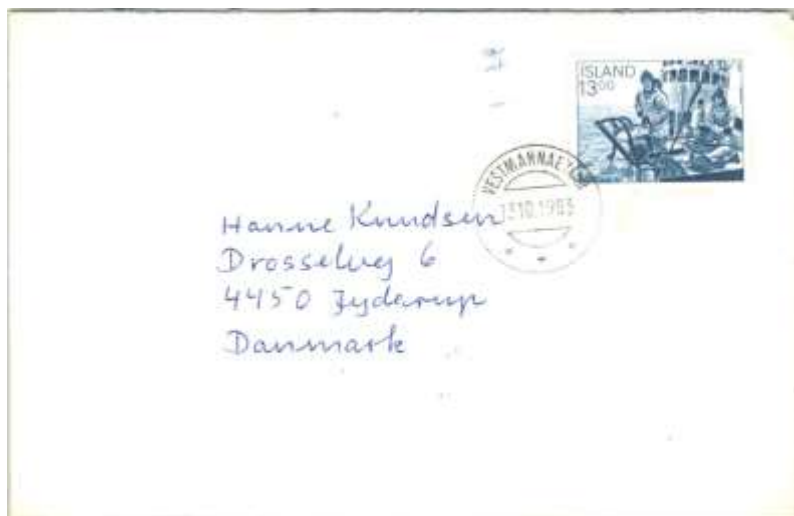 ÍSLAND
13⁰⁰
VESTMANNAEYJAR
10.1983
Hanne Knudsen
Drosselvej 6
4450 Jyderup
Danmark